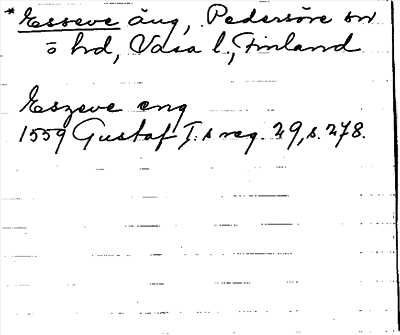 * Esseve äng, Pedersöre sn
ö hd, Vasa l., Finland
Eszeve eng
1559 Gustaf I:s reg. 29, s. 278.